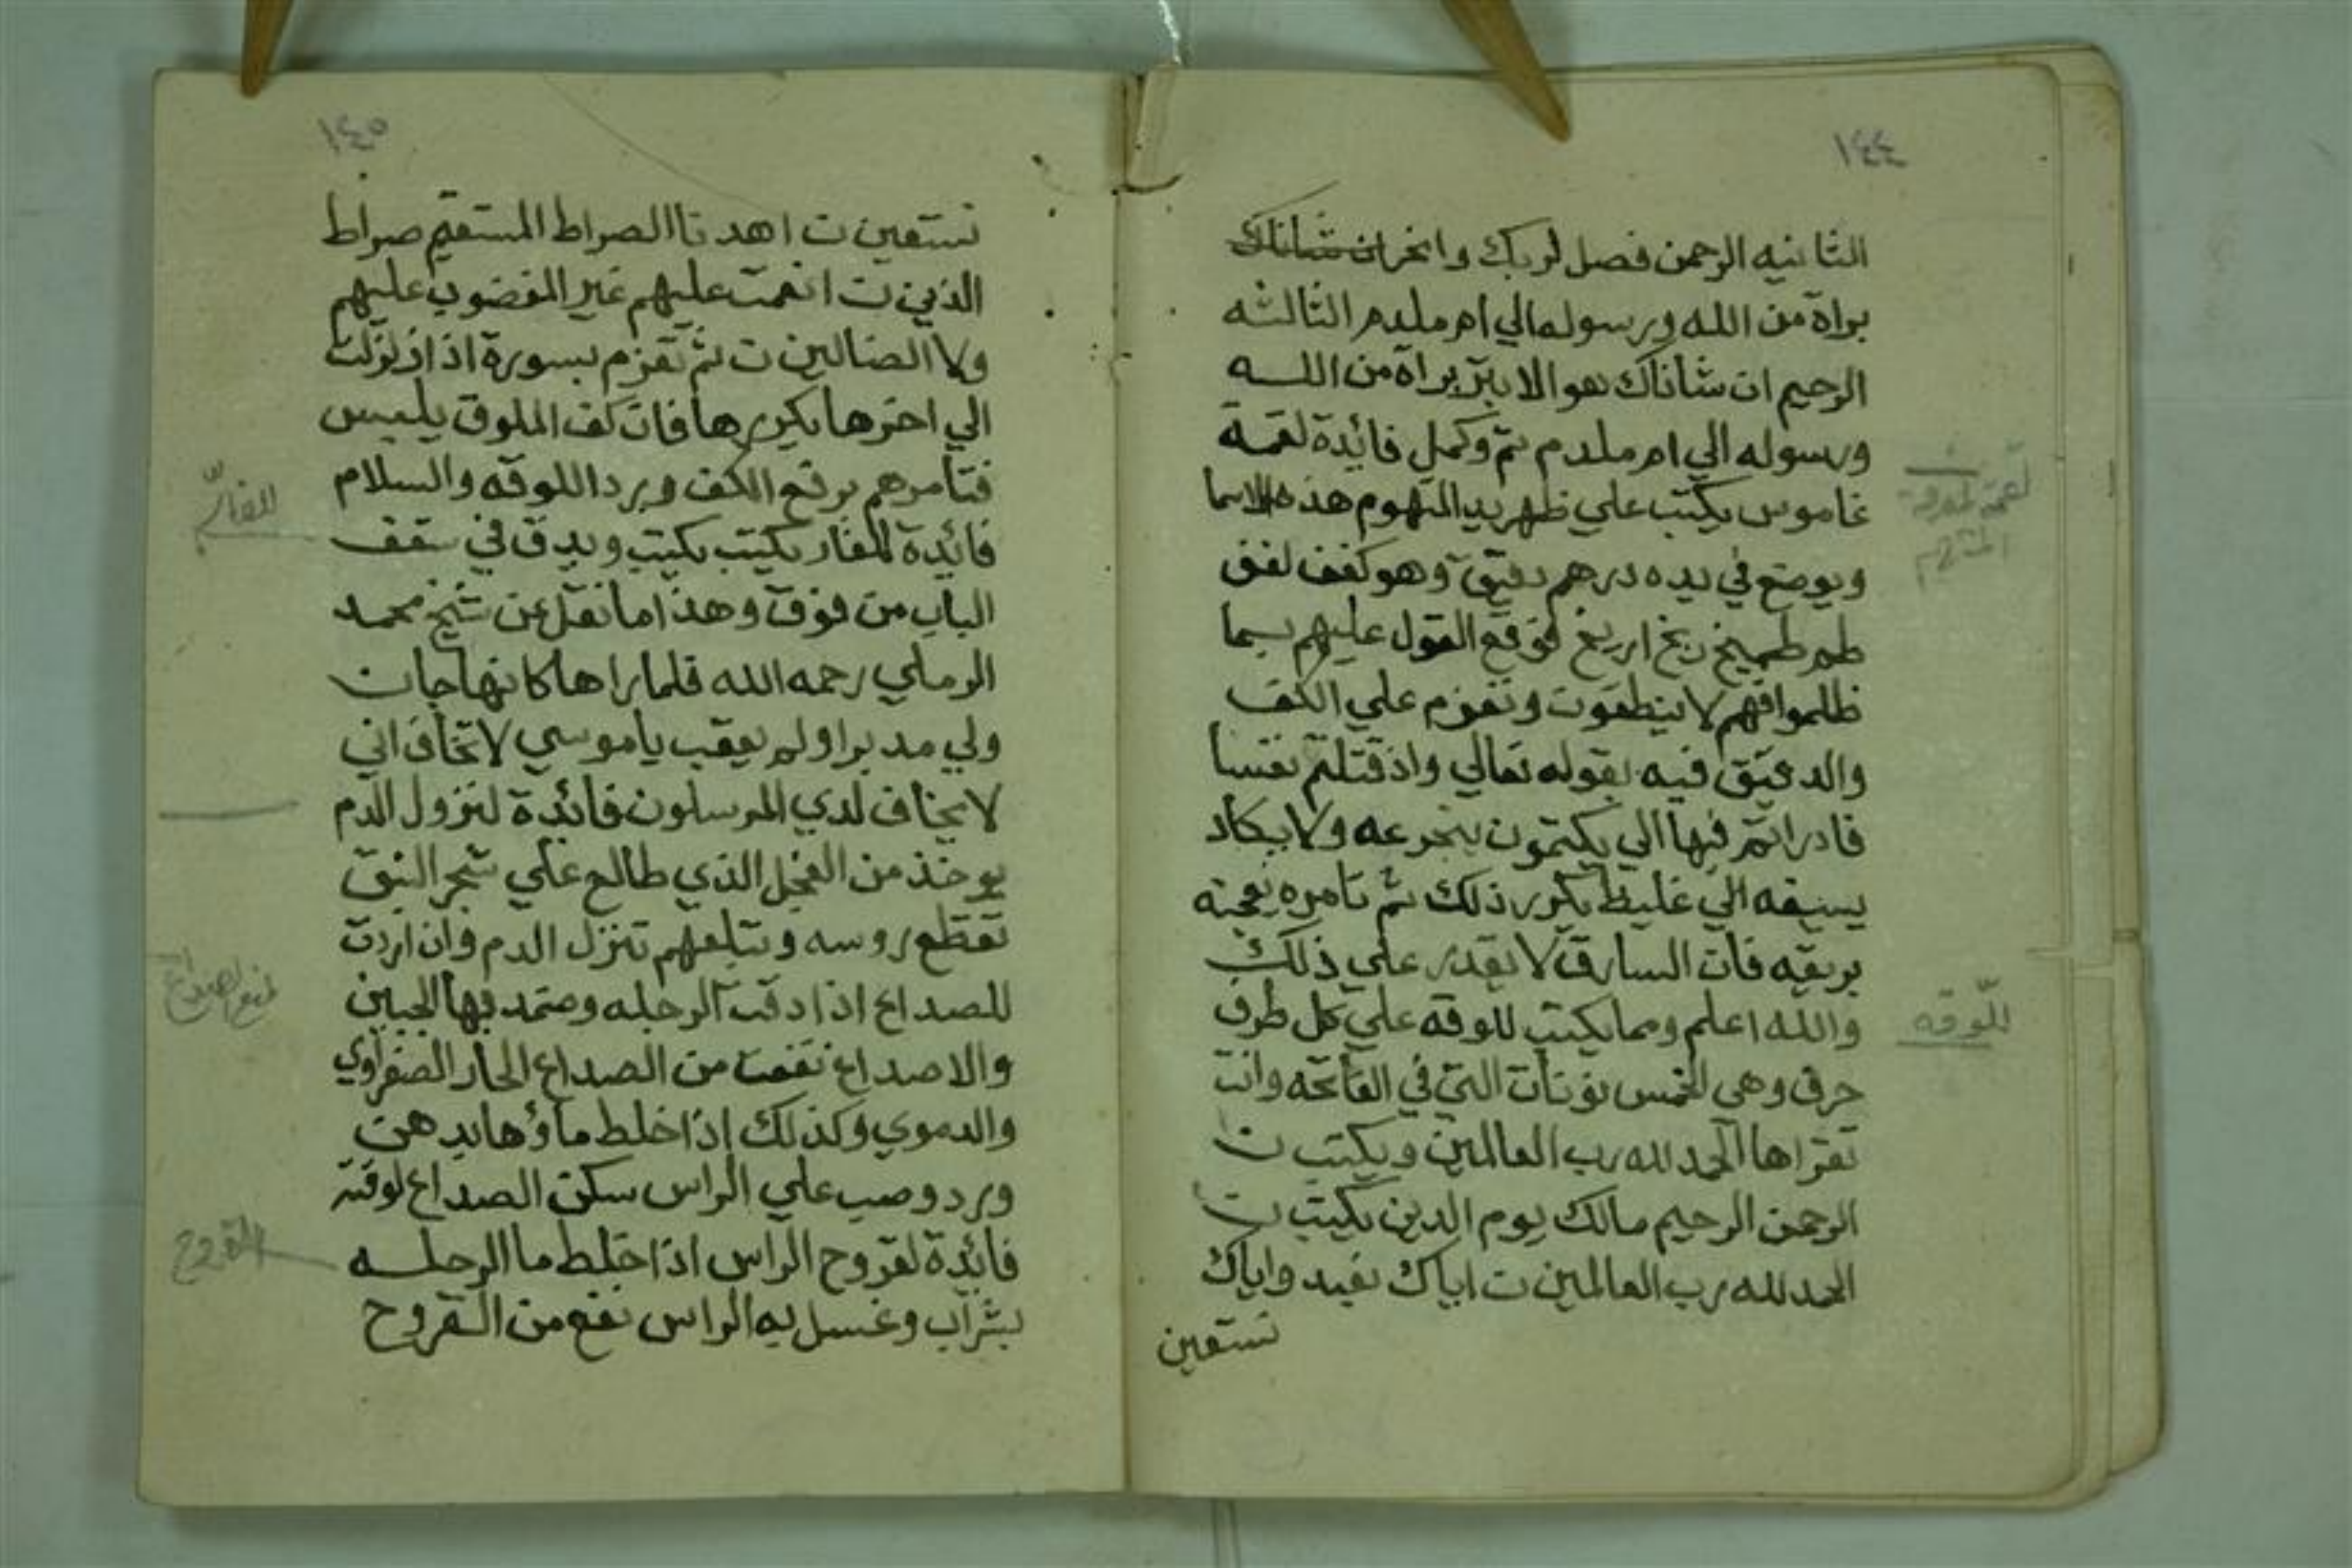 ١٤٤
الثانيه الرحمن فصل لربك وانحر ان شانك
براة من الله ورسوله الي ام ملدم الثالثه
الرحيم ان شاناك هو الابتر براة من اللـه
ورسوله الي ام ملدم تم وكمل فائدة لقمة
غاموس يكتب علي ظهر يد المتهوم هذه الاسما
ويوضع في يده درهم دقيق وهو كفف لفف
طهر طميخ زيخ اريغ فوقع القول عليهم بما
ظلموا فهم لا ينطقوت وتعزم علي الكف
والدقيق فيه بقوله تعالي واذ قتلتم نفسا
فادراتم فيها الي يكتمون يتجرعه ولا يكاد
يسيغه الي غليظ يكرر ذلك ثم تامره يعجنه
بريقه فان السارق لا يقدر علي ذلك
والله اعلم ومما يكتب للوقه علي كل طرف
حرف وهي الخمس نونات التي في الفاتحه وانت
تقراها الحمد لله رب العالمين ويكتب ن
الرحمن الرحيم مالك يوم الدين يكتب ن
الحمد لله رب العالمين ن اياك نعبد واياك
نستعين
اللوقه
١٤٥
نستعين ن اهدنا الصراط المستقيم صراط
الذين ن انعمت عليهم غير المغضوب عليهم
ولا الضالين ن ثم تعزم بسورة اذا زلزلت
الي اخرها يكررها فان كف الملوق يلبس
فتامرهم برفع الكف ويرد اللوقه والسلام
فائدة للفار يكتب يكتب ويدق في سقف
الباب من فوق وهذا ما نقل عن شيخ محمد
الرملي رحمه الله فلما راها كانها جان
ولي مدبرا ولم يعقب يا موسي لا تخاف اني
لا يخاف لدي المرسلون فائدة لنزول الدم
يوخذ من الفجل الذي طالع علي شجر النبق
تقطع روسه وتبلعهم تنزل الدم وان اردت
للصداع اذا دقت الرجله وضمد بها الجبين
والاصداغ نفعت من الصداع الحار الصفراوي
والدموي وكذلك اذا خلط ماؤها بدهن
ورد وصب علي الراس سكن الصداع لوقته
فائدة لقروح الراس اذا خلط ما الرجلـه
بشراب وغسل به الراس نفع من القروح
للفار
القروح